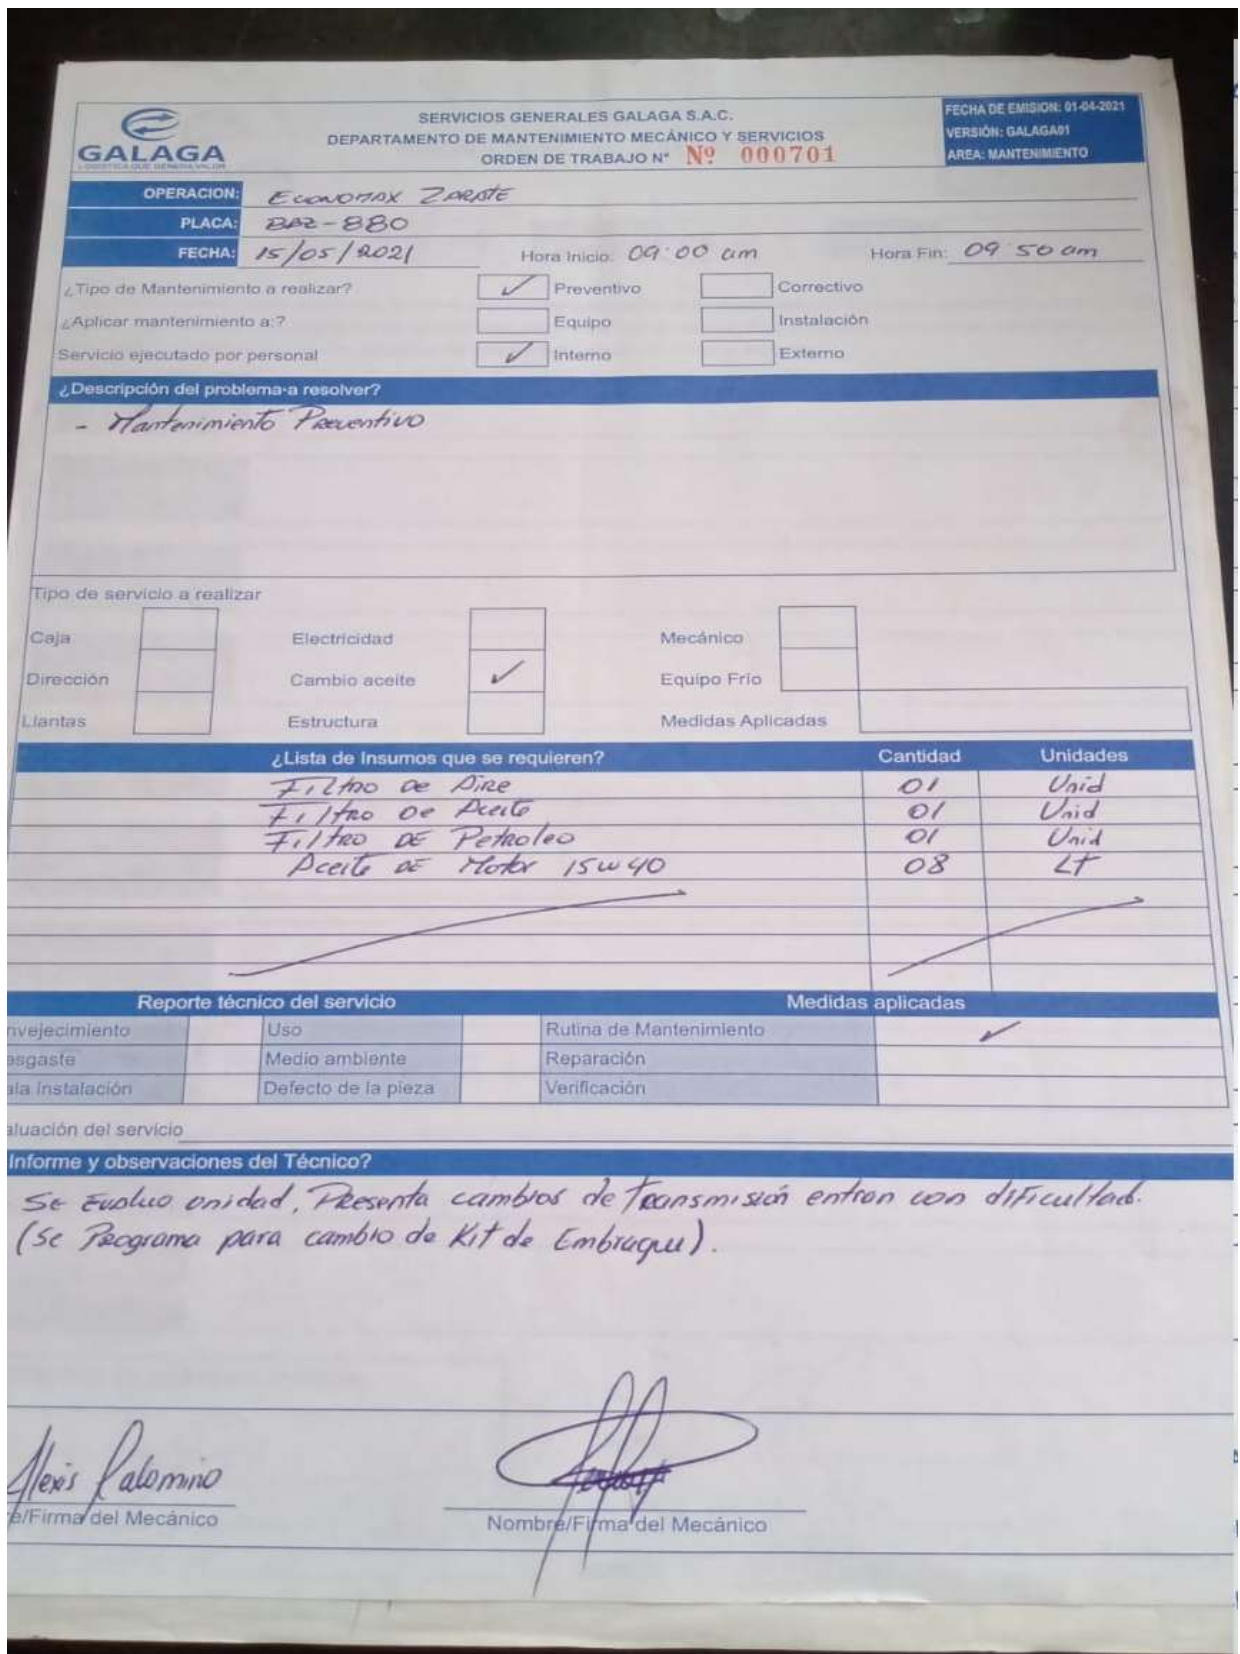 GALAGA
LOGISTICA QUE GENERA VALOR
SERVICIOS GENERALES GALAGA S.A.C.
DEPARTAMENTO DE MANTENIMIENTO MECÁNICO Y SERVICIOS
ORDEN DE TRABAJO N° Nº 000701
FECHA DE EMISION: 01-04-2021
VERSIÓN: GALAGA01
AREA: MANTENIMIENTO
OPERACION: ECONOMAX ZARATE
PLACA: BAZ-880
FECHA: 15/05/2021 Hora Inicio: 09:00 am Hora Fin: 09 50 am
¿Tipo de Mantenimiento a realizar? ✓ Preventivo Correctivo
¿Aplicar mantenimiento a:? Equipo Instalación
Servicio ejecutado por personal ✓ Interno Externo
¿Descripción del problema a resolver?
- Mantenimiento Preventivo
Tipo de servicio a realizar
Caja Electricidad Mecánico
Dirección Cambio aceite ✓ Equipo Frío
Llantas Estructura Medidas Aplicadas
¿Lista de Insumos que se requieren? Cantidad Unidades
Filtro de Aire 01 Unid
Filtro De Aceite 01 Unid
Filtro DE Petroleo 01 Unid
Aceite DE Motor 15W40 08 LT
Reporte técnico del servicio Medidas aplicadas
nvejecimiento Uso Rutina de Mantenimiento ✓
esgaste Medio ambiente Reparación
ala Instalación Defecto de la pieza Verificación
aluación del servicio
Informe y observaciones del Técnico?
Se Evaluo unidad, Presenta cambios de Transmisión entran con dificultad.
(Se Programa para cambio de Kit de Embrague).
Alexis Palomino
e/Firma del Mecánico Nombre/Firma del Mecánico